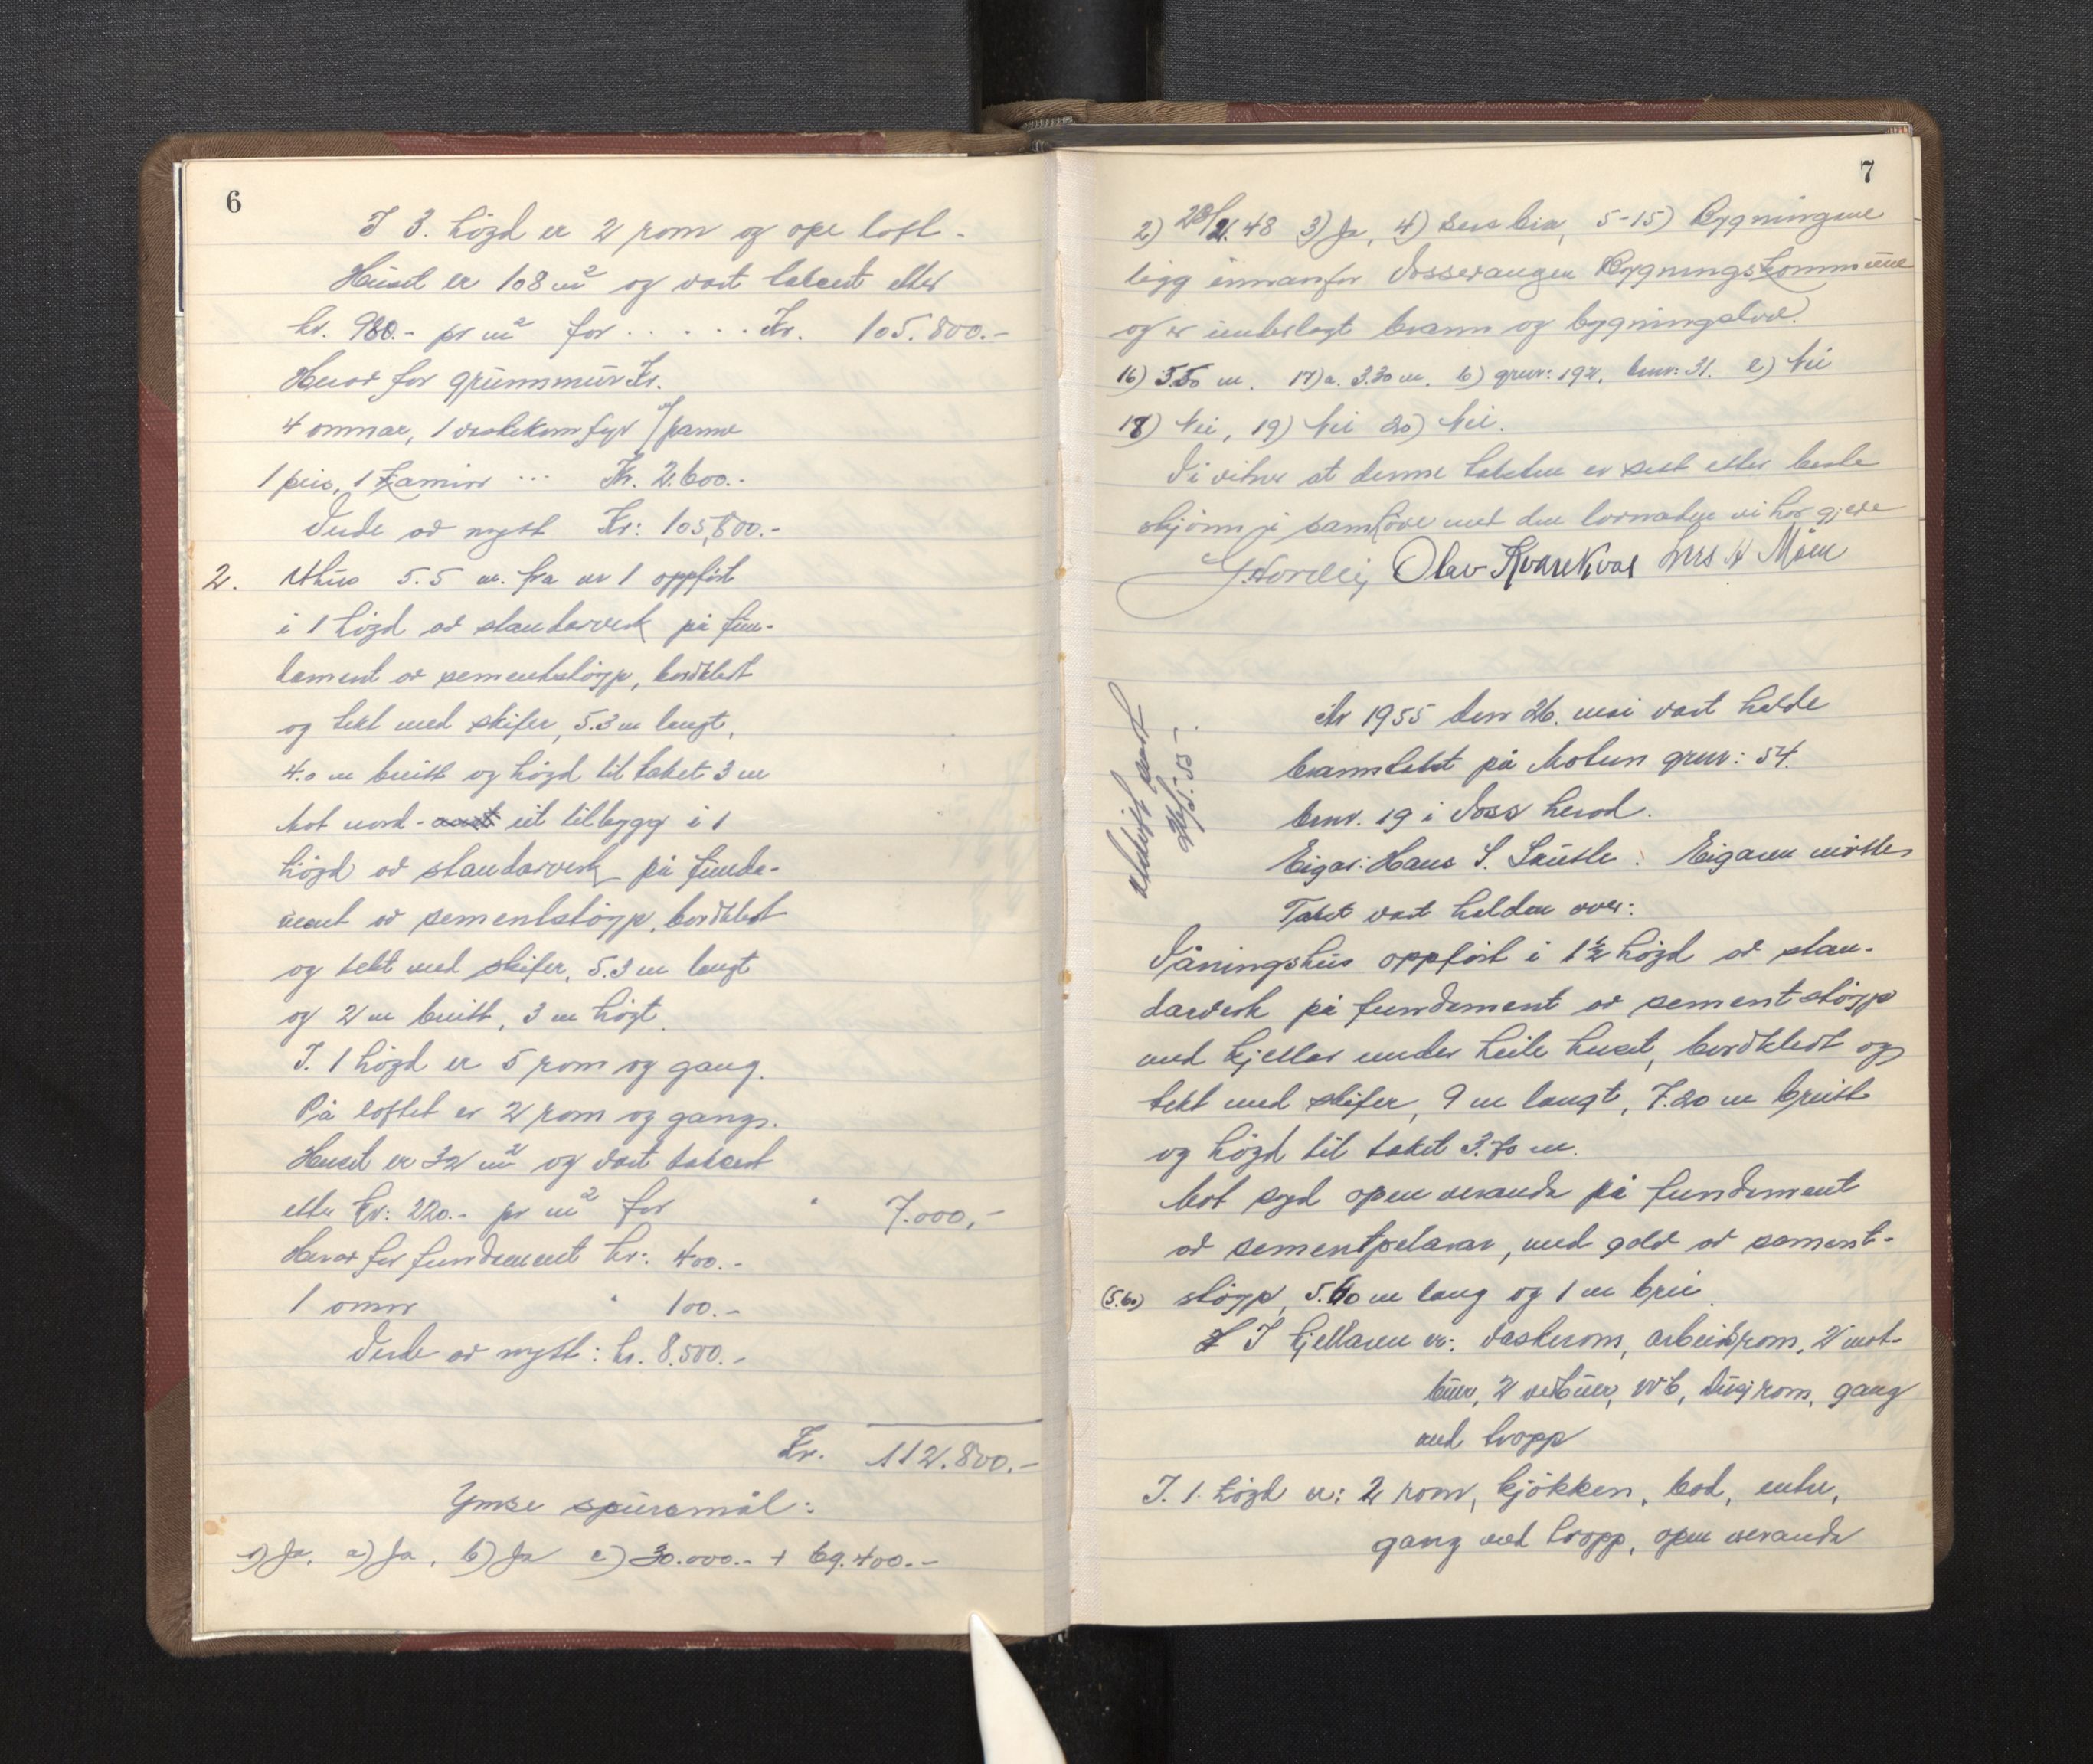 6
I 3. högd er 2 rom og ope loft.
Huset er 108 m² og vart taksert etter
kr. 980.- pr m² for . . . . . Kr. 105.800.-
Herav for grunnmur Kr.
4 omnar, 1 vaskekomfyr m/panne
1 peis, 1 kamin ... Kr. 2.600.-
Verde av nytt Kr: 105,800.-
2. Uthus 5.5 m. fra nr 1 oppfört
i 1 högd av standarverk på fun-
dament av sementstöyp, bordkledt
og tekt med skifer, 5.3 m langt,
4.0 m breitt og högd til taket 3 m
Mot nord- eit tilbygg i 1
högd av standarverk på funda-
ment av sementstöyp, bordkledt
og tekt med skifer, 5.3 m langt
og 2 m breitt, 3 m högt.
I. 1 högd er 5 rom og gang.
På loftet er 2 rom og gang.
Huset er 32 m² og vart taksert
etter kr: 220.- pr m² for " 7.000,-
Herav for fundament kr: 400.-
1 omn " 100.-
Verde av nytt: kr. 8.500.-
Kr. 112.800.-
Ymse spursmål:
1) Ja, a) Ja, b) Ja c) 30.000.- + 69.400.-
7
2) 28/2.48 3) Ja, 4) 5-15) Bygningane
ligg innanfor Vossevangen Bygningskommune
og er underlagt brann og bygningslov.
16) 5.50 m. 17) a. 3.30 m. b) gnr: 192, bnr: 31. c) Nei
18) Nei, 19) Nei 20) Nei.
Vi vitner at denne taksten er sett etter beste
skjönn i samhöve med den lovnaden vi har gjeve
Olav Kvarekval Lars N Möen
Utskrift sendt
26/5-55-.
År 1955 den 26. mai vart halde
branntakst på Molun gnr: 54.
bnr. 19 i Voss herad.
Eigar: Hans S. Saude. Eigaren mötte.
Takst vart halden over:
Våningshus oppfört i 1½ högd av stan-
darverk på fundament av sementstöyp
med kjellar under heile huset, bordkledt og
tekt med skifer, 9 m langt, 7.20 m breitt
og högd til taket 3.70 m.
Mot syd open veranda på fundament
av sementpelarar, med golv av sement-
(5.60) stöyp, 5.60 m lang og 1 m brei.
I kjellaren er: vaskerom, arbeidsrom, 2 mat-
buer, 2 vedbuer, WC, dusjrom, gang
med tropp
I. 1. högd er: 2 rom, kjökken, bad, entre,
gang med tropp, open veranda